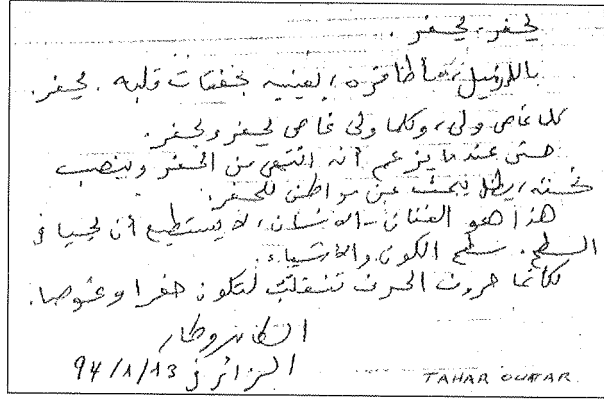 يحفر، يحفر.
بالإزميل، بأظافره، بعينيه بخفقات قلبه. يحفر.
كلما غاص ولى، وكلما ولى غاص ليحفر ويحفر.
حتى عندما يزعم أنه انتهى من الحفر وينصب
تحفته، يظل يبحث عن مواطن للحفر.
هذا هو الفنان-الانسان، لا يستطيع أن يحيا في
السطح. سطح الكون والاشياء.
لكأنما حروف الحرث تنقلب لتكون حفرا وغوصا.
الطاهر وطار
الجزائر في 94/1/13
TAHAR OUATAR